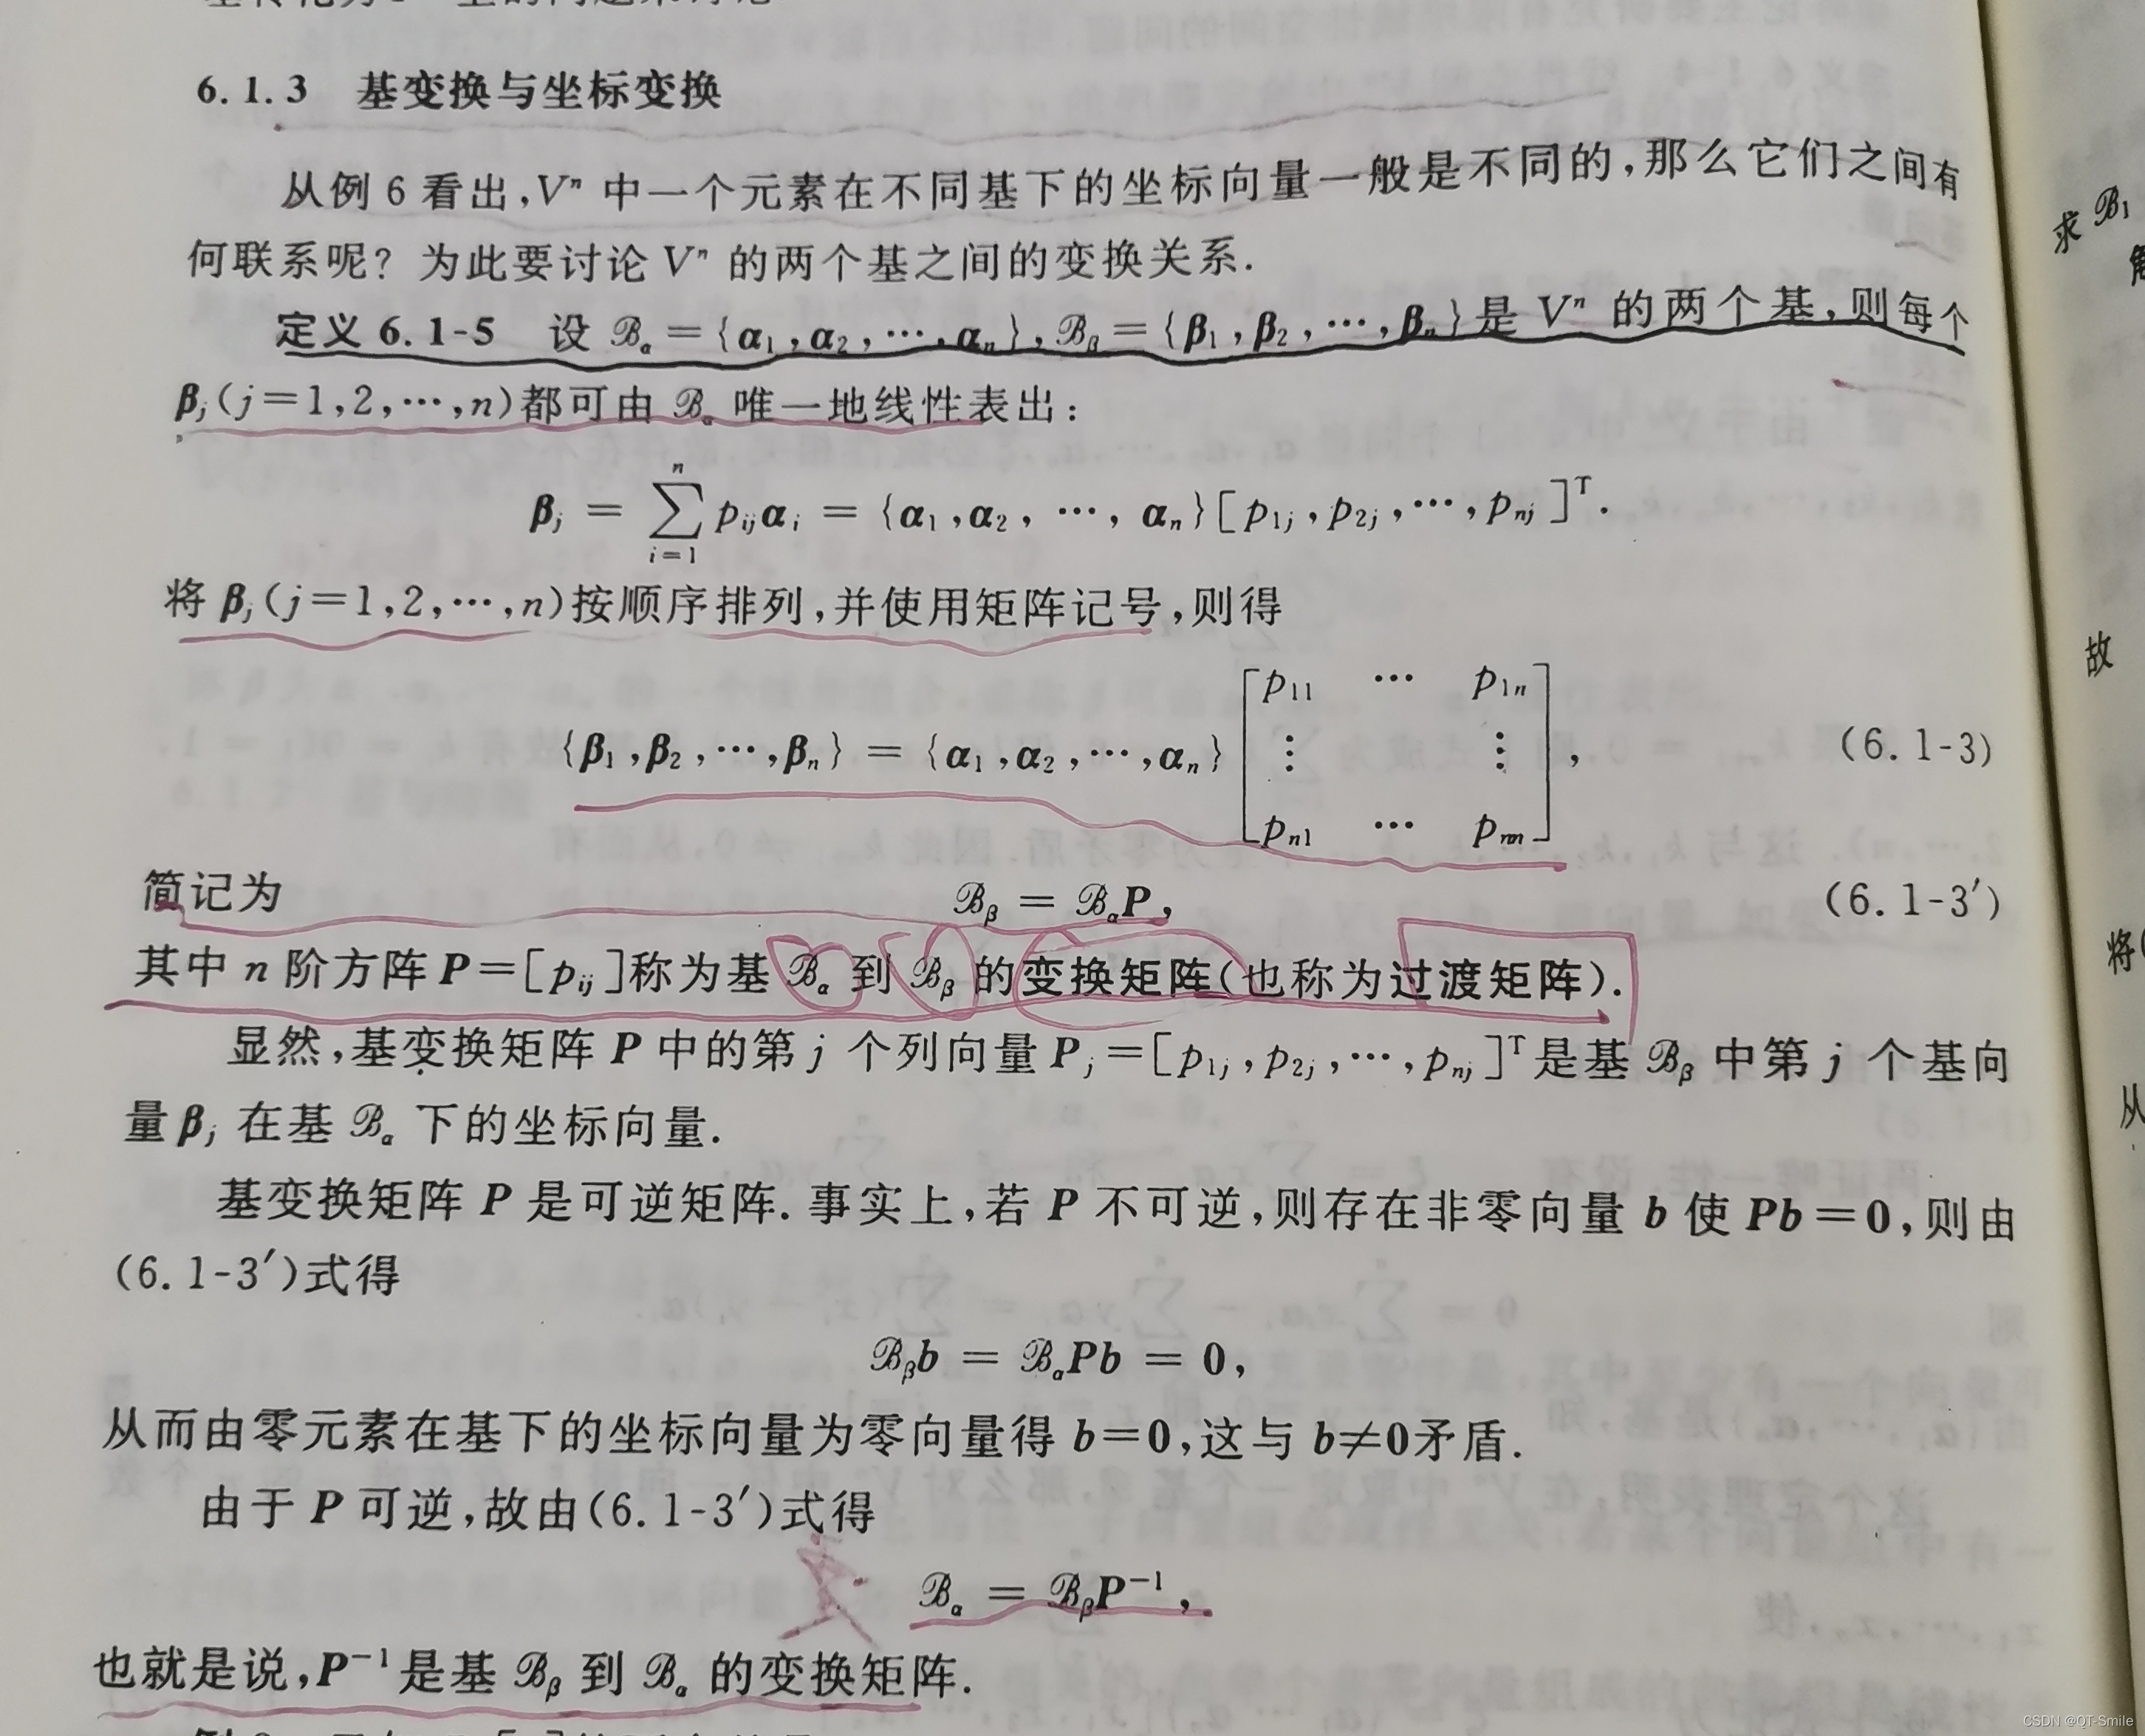 6.1.3 基变换与坐标变换
从例 6 看出,Vⁿ 中一个元素在不同基下的坐标向量一般是不同的,那么它们之间有
何联系呢? 为此要讨论 Vⁿ 的两个基之间的变换关系.
定义 6.1-5 设 ℬ_α={α₁,α₂,⋯,αₙ},ℬ_β={β₁,β₂,⋯,βₙ}是 Vⁿ 的两个基,则每个
β_j(j=1,2,⋯,n)都可由 ℬ_α 唯一地线性表出:
β_j = ∑_{i=1}^{n} p_{ij}α_i = {α₁,α₂,⋯,αₙ}[p_{1j},p_{2j},⋯,p_{nj}]ᵀ.
将 β_j(j=1,2,⋯,n)按顺序排列,并使用矩阵记号,则得
p₁₁ ⋯ p_{1n}
{β₁,β₂,⋯,βₙ} = {α₁,α₂,⋯,αₙ} [ ⋮ ⋮ ], (6.1-3)
p_{n1} ⋯ p_{nn}
简记为 ℬ_β = ℬ_αP, (6.1-3′)
其中 n 阶方阵 P=[p_{ij}]称为基 ℬ_α 到 ℬ_β 的变换矩阵(也称为过渡矩阵).
显然,基变换矩阵 P 中的第 j 个列向量 P_j=[p_{1j},p_{2j},⋯,p_{nj}]ᵀ是基 ℬ_β 中第 j 个基向
量 β_j 在基 ℬ_α 下的坐标向量.
基变换矩阵 P 是可逆矩阵. 事实上,若 P 不可逆,则存在非零向量 b 使 Pb=0,则由
(6.1-3′)式得
ℬ_βb = ℬ_αPb = 0,
从而由零元素在基下的坐标向量为零向量得 b=0,这与 b≠0矛盾.
由于 P 可逆,故由(6.1-3′)式得
ℬ_α = ℬ_βP⁻¹,
也就是说,P⁻¹是基 ℬ_β 到 ℬ_α 的变换矩阵.
求 ℬ₁
故
将
从
CSDN @OT-Smile